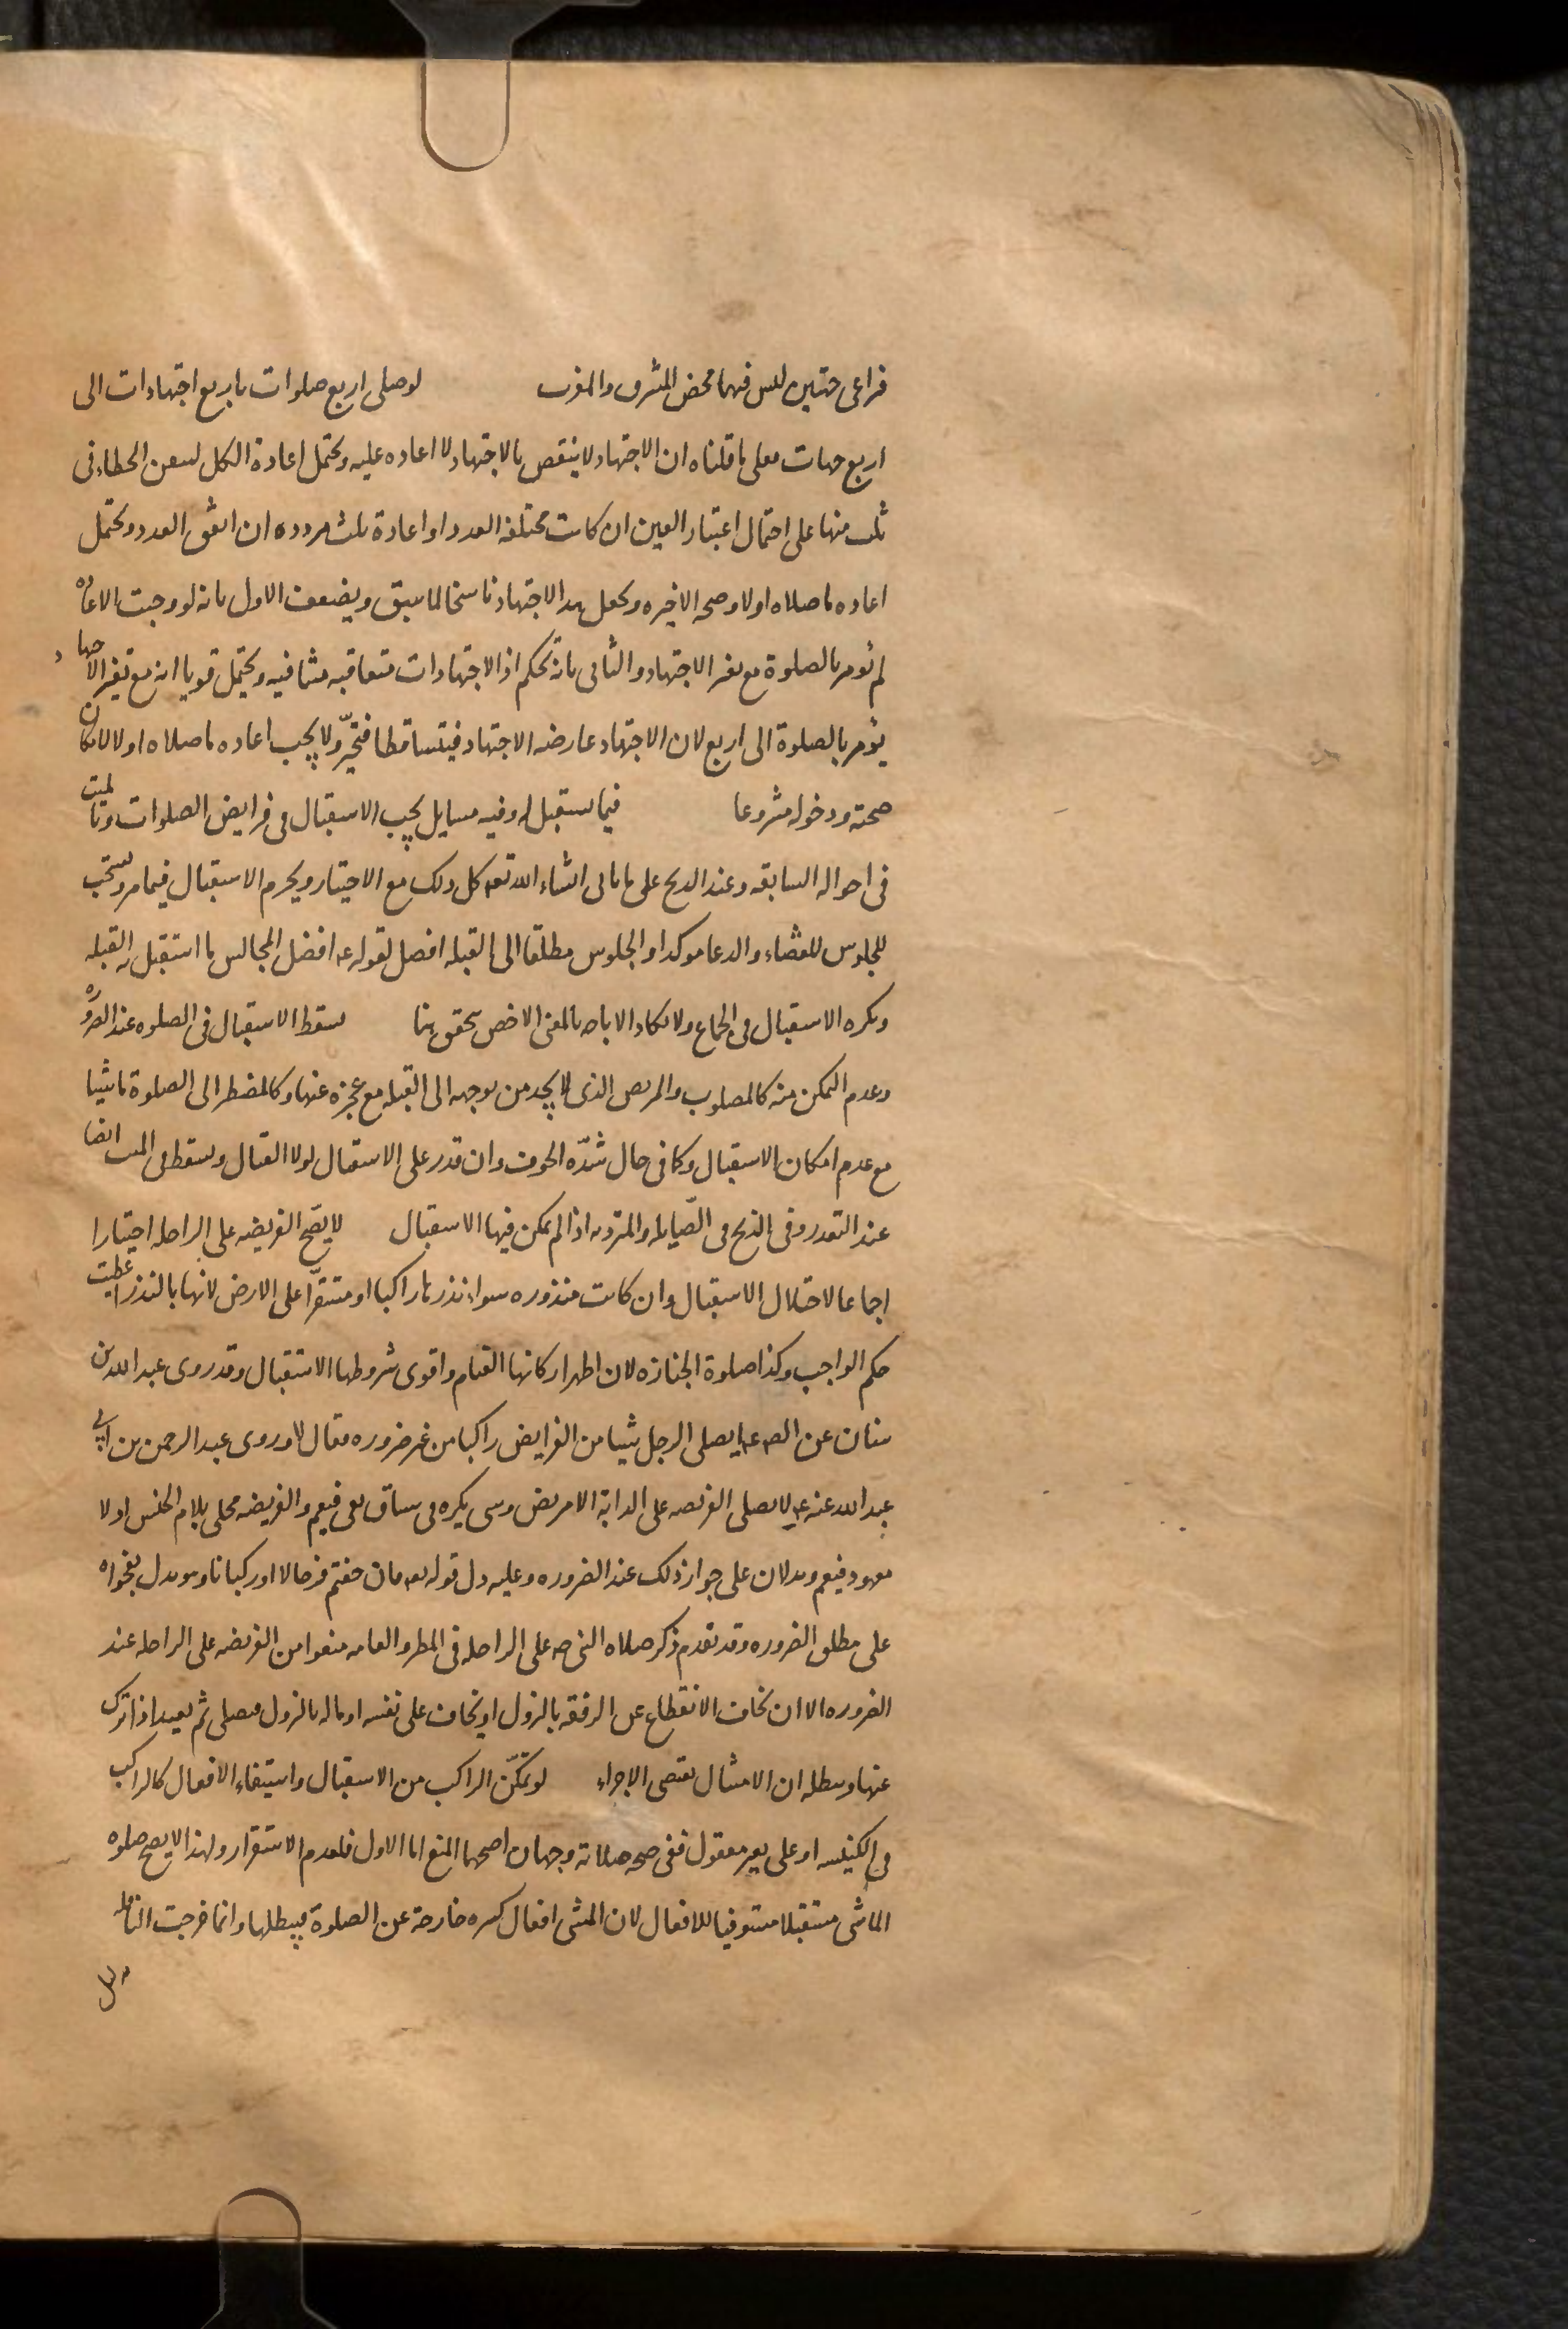 فراعى جهتين ليس فيهما محض المشرق والمغرب لو صلى اربع صلوات باربع اجتهادات الى
اربع جهات فعلى ما قلناه ان الاجتهاد لا ينقض بالاجتهاد لا اعاده عليه ويحتمل اعادة الكل لتيقن الخطاء فى
ثلث منها على احتمال اعتبار العين ان كانت مختلفه العدد او اعادة ثلث مردده ان اتفق العدد ويحتمل
اعاده ما صلاه اولا وصحه الاخيره ويجعل هذا الاجتهاد ناسخا لما سبق ويضعف الاول بانه لو وجبت الاعاده
لم نومر بالصلوة مع تغير الاجتهاد والثانى بانه تحكم اذ الاجتهادات متعاقبه متنافيه ويحتمل قويا انه مع تغير الاجتهاد
يؤمر بالصلوة الى اربع لان الاجتهاد عارضه الاجتهاد فيتساقطا فتحيّر ولا يجب اعاده ما صلاه اولا لامكان
صحته ودخوله مشروعا فيما يستقبل له وفيه مسايل يجب الاستقبال فى فرايض الصلوات وبالميت
فى احواله السابقه وعند الذبح على ما ياتى انشاء الله تعه كل ذلك مع الاختيار ويحرم الاستقبال فيما مر ويستحب
للجلوس للقضاء والدعا موكدا والجلوس مطلقا الى القبله افضل لقوله عه افضل المجالس ما استقبل به القبله
ويكره الاستقبال فى الجماع ولا تكاد الاباحه بالمعنى الاخص يتحقق هنا يسقط الاستقبال فى الصلوه عند الضروره
وعدم التمكن منه كالمصلوب والمريض الذى لا يجد من يوجهه الى القبله مع عجزه عنها وكالمضطر الى الصلوة ماشيا
مع عدم امكان الاستقبال وكما فى حال شدّه الخوف وان قدر على الاستقبال لولا القتال ويسقط فى الميت ايضا
عند التعذر وفى الذبح فى الصّايله والمترديه اذا لم يمكن فيها الاستقبال لا يصّح الفريضه على الراحله اختيارا
اجماعا لاختلال الاستقبال وان كانت منذوره سواء نذرها راكبا او مستقرّا على الارض لانها بالنذر اعطيت
حكم الواجب وكذا صلوة الجنازه لان اظهر اركانها القيام واقوى شروطها الاستقبال وقد روى عبد الله بن
سنان عن الصه عه ايصلى الرجل شيئا من الفرايض راكبا من غير ضروره فقال لا وروى عبد الرحمن بن ابى
عبد الله عنه عه لا يصلى الفريضه على الدابة الا مريض وهى نكره فى سياق نفى فيعم والفريضه محلى بلام الجنس اولا
معهود فيعم ويدلان على جواز ذلك عند الضروره وعليه دل قوله تعه فان خفتم فرجالا او ركبانا وهو يدل بفحواه
على مطلق الضروره وقد تقدم ذكر صلاه النبى صه على الراحله فى المطر والعامه منعوا من الفريضه على الراحله عند
الضروره الا ان يخاف الانقطاع عن الرفقه بالنزول او يخاف على نفسه او ماله بالنزول فيصلى ثم يعيد اذا ترك
عنها ويبطله ان الامتثال يقتضى الاجزاء لو تمكّن الراكب من الاستقبال واستيفاء الافعال كالراكب
فى الكنيسه او على بعير معقول ففى صحه صلاته وجهان اصحهما المنع اما الاول فلعدم الاستقرار ولهذا لا يصح صلوه
الماشى مستقبلا مستوفيا للافعال لان المشى افعال كثيره خارجة عن الصلوة فيبطلها وانما خرجت النافله